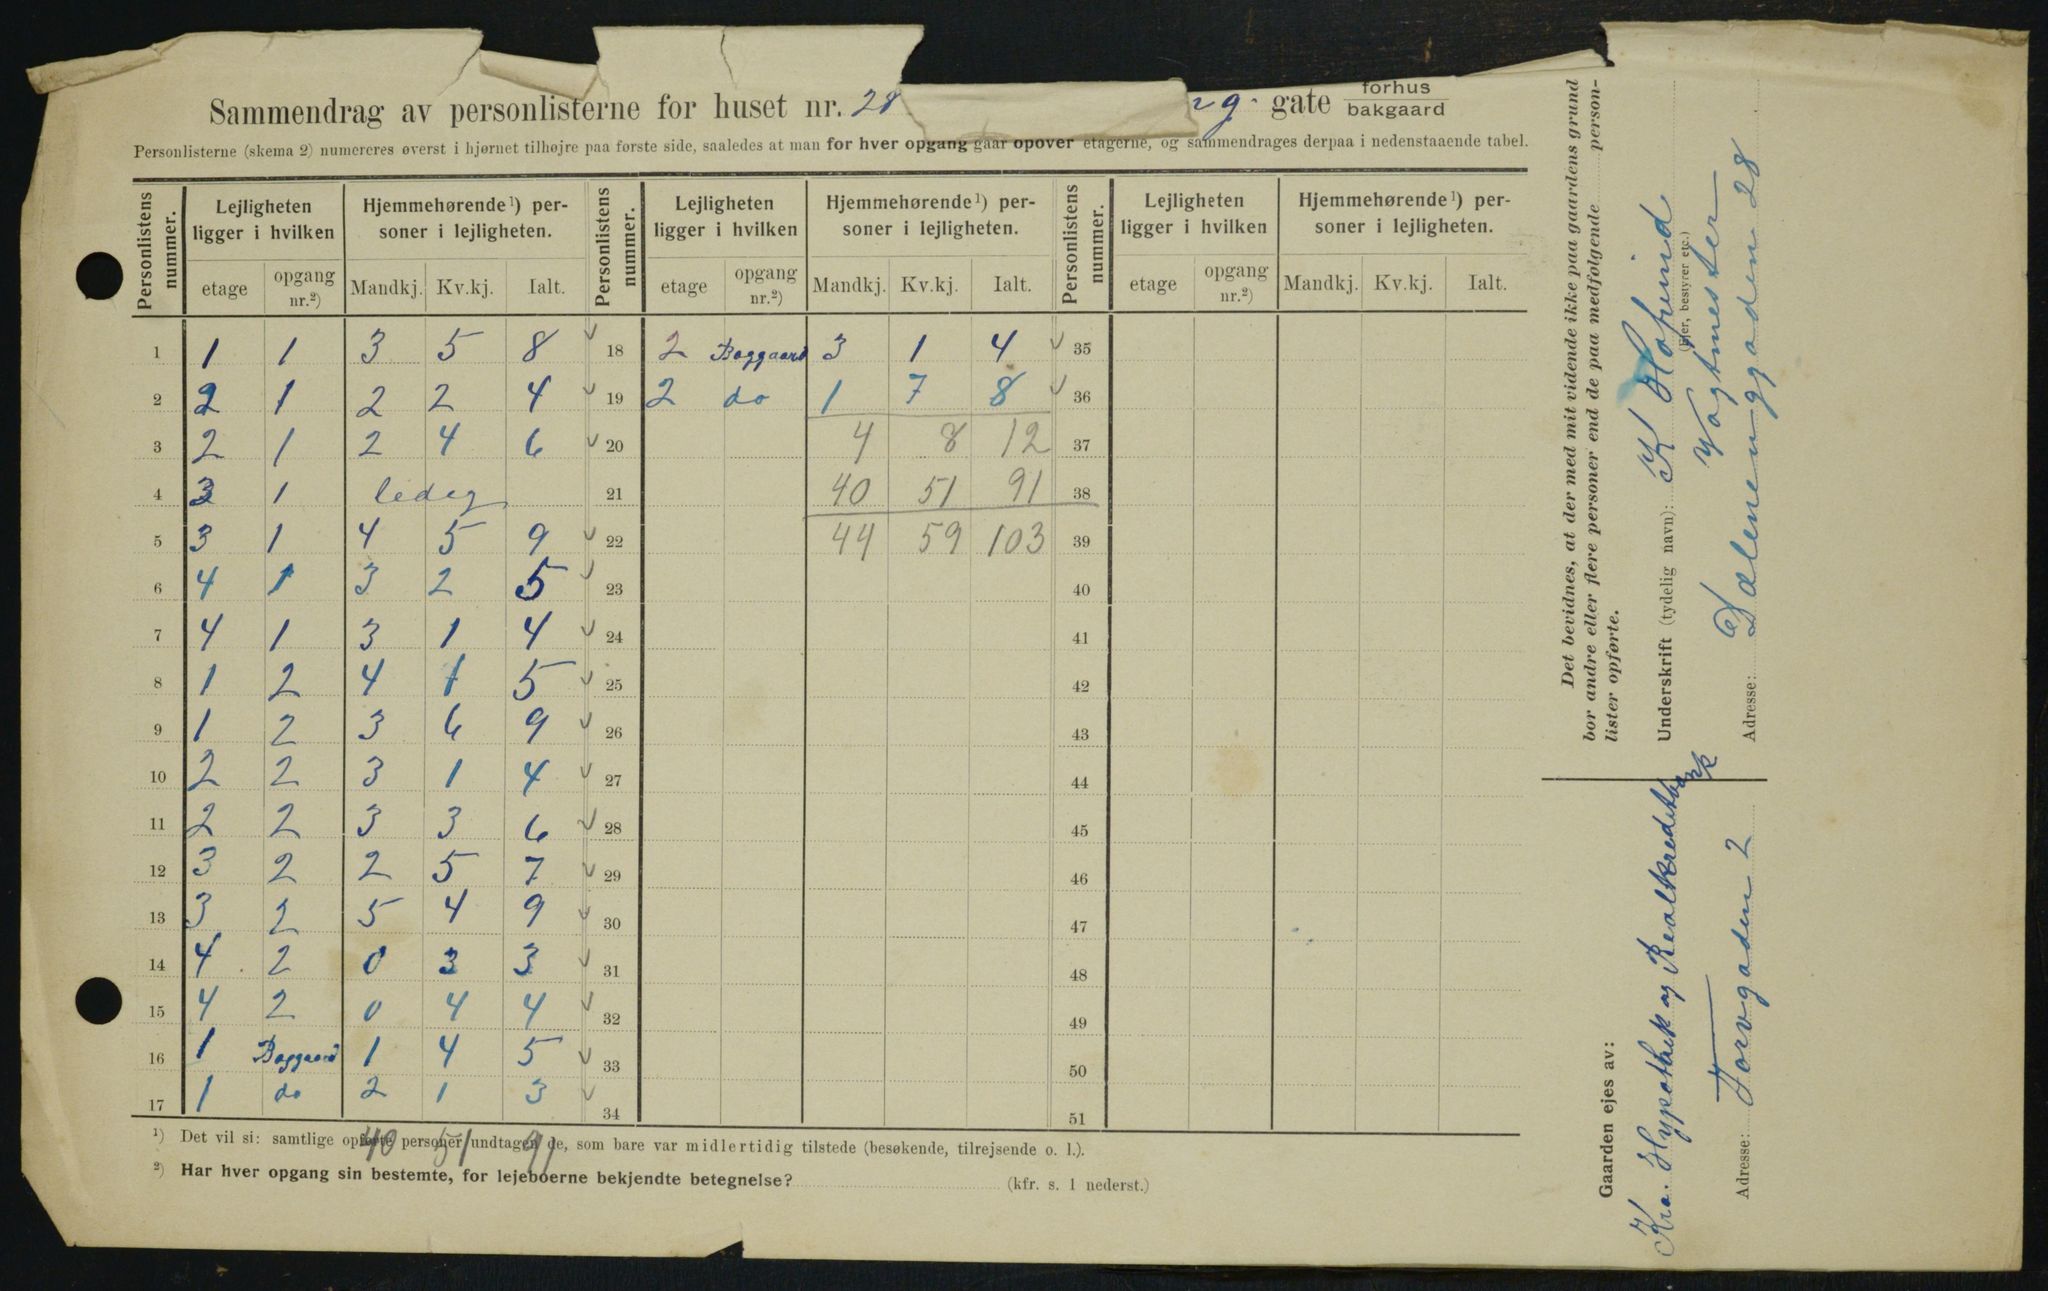 Sammendrag av personlisterne for huset nr. 28 g. gate forhus bakgaard
Personlisterne (skema 2) numereres øverst i hjørnet tilhøjre paa første side, saaledes at man for hver opgang gaar opover etagerne, og sammendrages derpaa i nedenstaaende tabel.
Personlistens nummer. Lejligheten ligger i hvilken Hjemmehørende ¹) personer i lejligheten. Personlistens nummer. Lejligheten ligger i hvilken Hjemmehørende ¹) personer i lejligheten. Personlistens nummer. Lejligheten ligger i hvilken Hjemmehørende ¹) personer i lejligheten.
etage opgang nr.²) Mandkj. Kv.kj. Ialt. etage opgang nr.²) Mandkj. Kv.kj. Ialt. etage opgang nr.²) Mandkj. Kv.kj. Ialt.
1 1 1 3 5 8 18 2 Baggaard 3 1 4 35
2 2 1 2 2 4 19 2 do 1 7 8 36
3 2 1 2 4 6 20 4 8 12 37
4 3 1 ledig 21 40 51 91 38
5 3 1 4 5 9 22 44 59 103 39
6 4 1 3 2 5 23 40
7 4 1 3 1 4 24 41
8 1 2 4 1 5 25 42
9 1 2 3 6 9 26 43
10 2 2 3 1 4 27 44
11 2 2 3 3 6 28 45
12 3 2 2 5 7 29 46
13 3 2 5 4 9 30 47
14 4 2 0 3 3 31 48
15 4 2 0 4 4 32 49
16 1 Baggaard 1 4 5 33 50
17 1 do 2 1 3 34 51
40 51 91
¹) Det vil si: samtlige opførte personer undtagen de, som bare var midlertidig tilstede (besøkende, tilrejsende o. l.).
²) Har hver opgang sin bestemte, for lejeboerne bekjendte betegnelse? (kfr. s. 1 nederst.)
Det bevidnes, at der med mit vidende ikke paa gaardens grund
bor andre eller flere personer end de paa medfølgende personlister opførte.
Underskrift (tydelig navn): K Hofsind
(Ejer, bestyrer etc.)
Vagtmester
Adresse: Dælenenggaden 28
Gaarden ejes av:
Kra. Hypothek og Realkreditbank
Adresse: Torvgaden 2